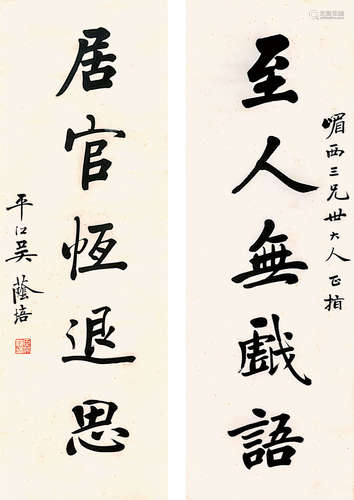 至人無戲語
嵋西三兄世大人正揩
居官恆退思
平江吳蔭培